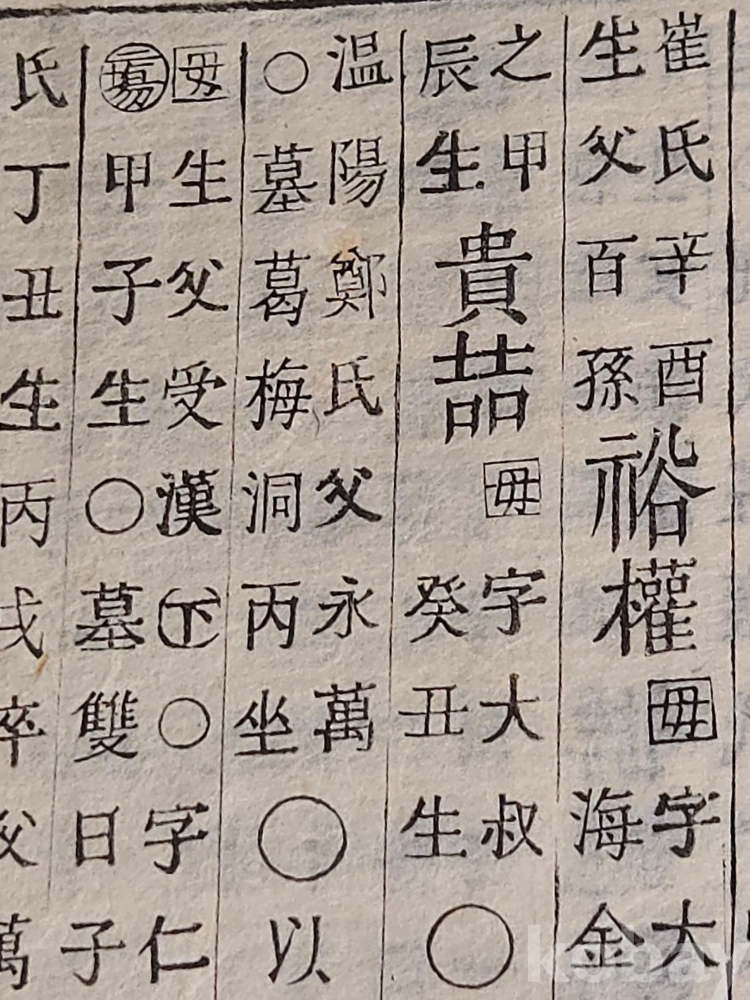 崔氏辛酉
生父百孫
裕權
毋字大
海金
之甲
辰生
貴喆
毋字大叔
癸丑生
○
温陽鄭氏父永萬
○墓葛梅洞丙坐
○以
毋生父受漢下○字仁
甲子生○墓雙日子
氏丁丑生丙戌卒父萬